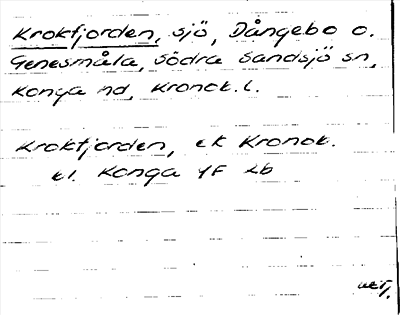 Krokfjorden, sjö, Dångebo o.
Genesmåla, Södra Sandsjö sn,
Konga hd, Kronob. l.
Krokfjorden, ek Kronob.
Konga YF